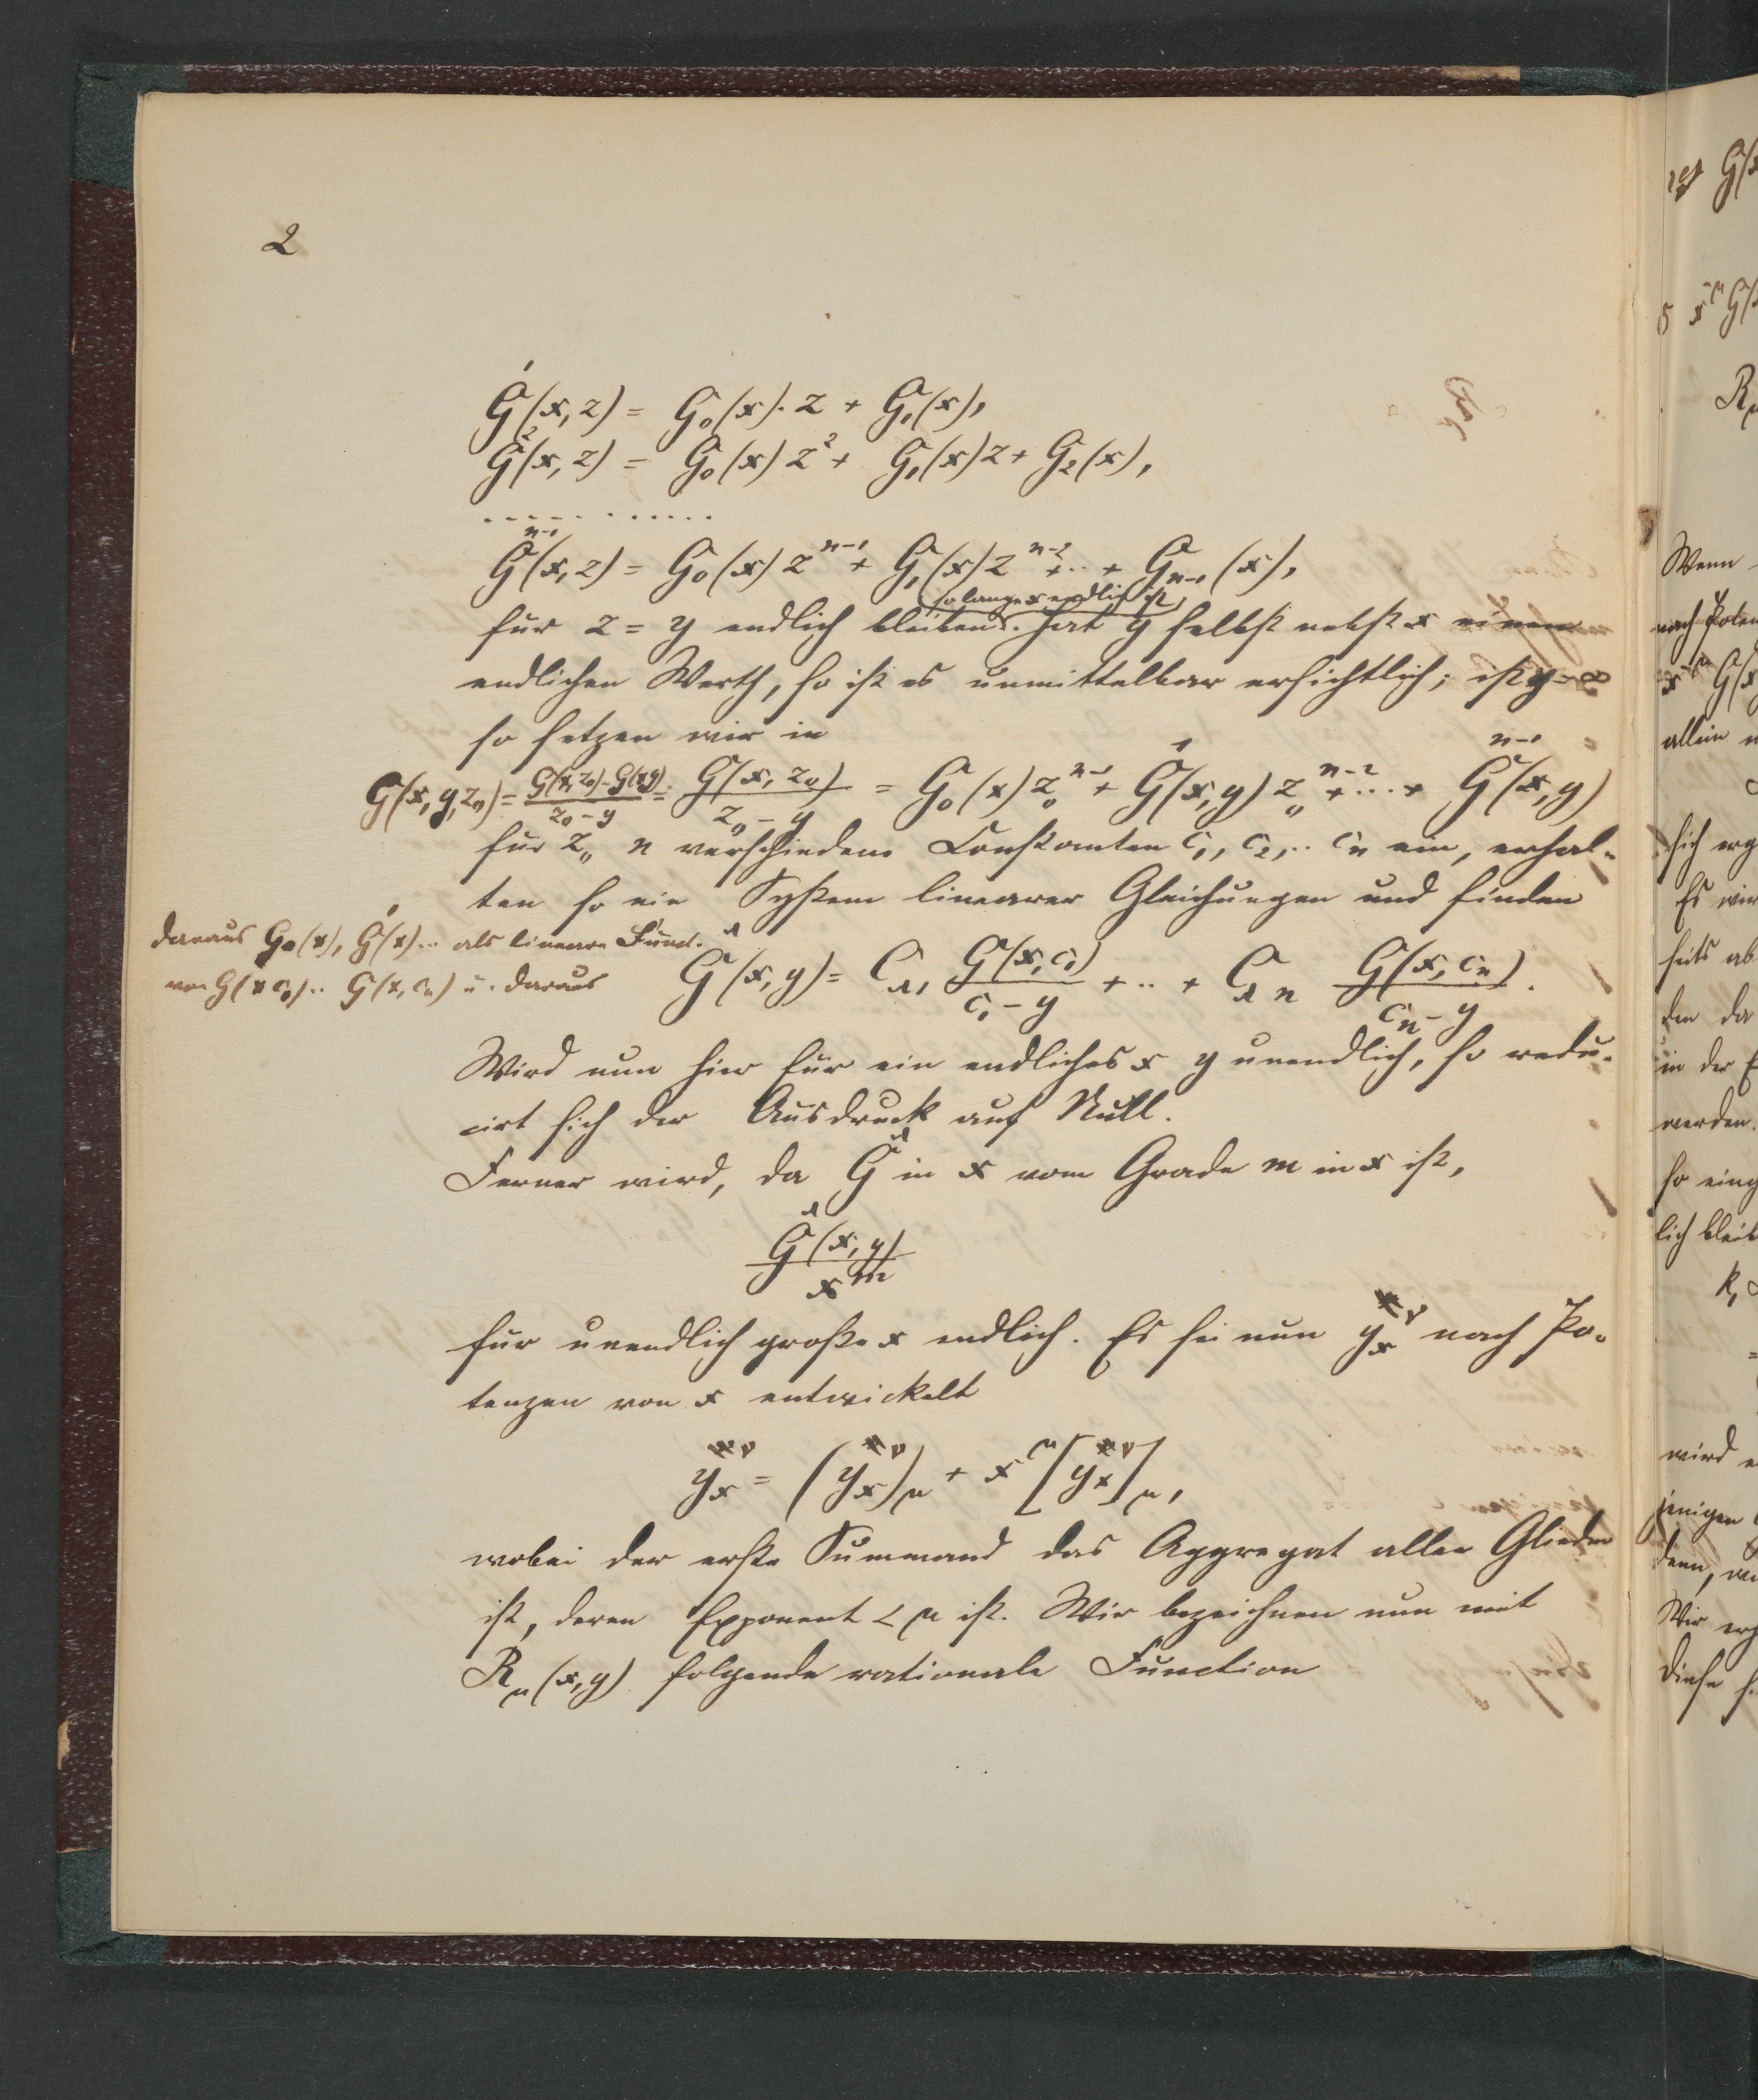 2
G¹(x, z) = G₀(x). z + G₁(x),
G²(x, z) = G₀(x) z² + G₁(x) z + G₂(x),
. . . . . . . . . . . .
Gⁿ⁻¹(x, z) = G₀(x) zⁿ⁻¹ + G₁(x) zⁿ⁻² + .. + Gₙ₋₁(x),
so lange x endlich ist
für z = y endlich bleiben. Hat y selbst nebst x einen
endlichen Werth, so ist es unmittelbar ersichtlich; ist y = ∞
so setzen wir in
G(x, y, z₀) = (G(x, z₀) - G(x y))/(z₀ - y) = G(x, z₀)/(z₀ - y) = G₀(x) z₀ⁿ⁻¹ + G¹(x, y) z₀ⁿ⁻² + ... + Gⁿ⁻¹(x, y)
für z₀ n verschiedene Constanten c₁, c₂, .. cₙ ein, erhal-
ten so ein System linearer Gleichungen und finden
daraus G₀(x), G¹(x) .. als lineare Funct.
von G(x c₁) .. G(x, cₙ) u. daraus
G^λ(x, y) = C_λ₁ G(x, c₁)/(c₁ - y) + .. + C_λn G(x, cₙ)/(cₙ - y).
Wird nun hier für ein endliches x y unendlich, so redu-
cirt sich der Ausdruck auf Null.
Ferner wird, da G^λ in x vom Grade m in x ist,
G^λ(x, y)/x^m
für unendlich große x endlich. Es sei nun y_x^ν nach Po-
tenzen von x entwickelt
y_x^ν = (y_x^ν)_μ + x^μ [y_x^ν]_μ,
wobei der erste Summand das Aggregat aller Glieder
ist, deren Exponent < μ ist. Wir bezeichnen nun mit
R_μ(x, y) folgende rationale Function
Wenn
allein
sich erg
Es wir
seits ab
in der E
werden.
so eing
lich bleib
wird
jenigen
denn,
Wir erg
Diese